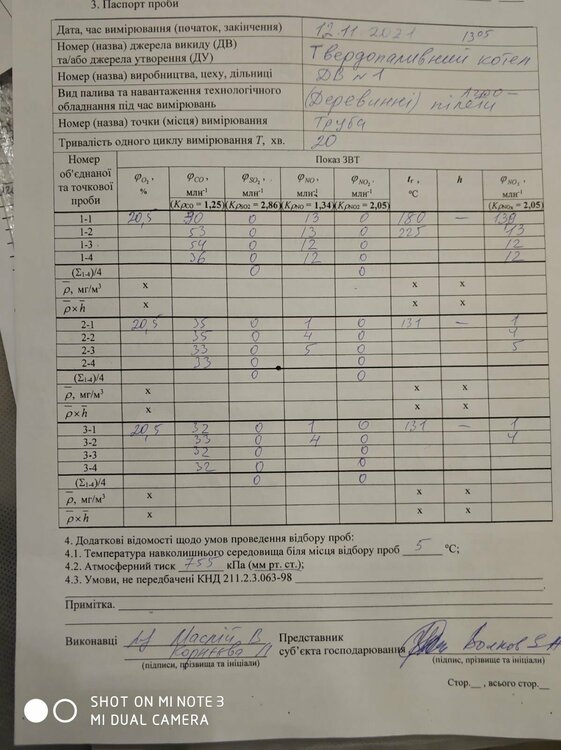 3. Паспорт проби
Дата, час вимірювання (початок, закінчення) 12.11.2021 13 05
Номер (назва) джерела викиду (ДВ) Твердопаливний котел
та/або джерела утворення (ДУ)
Номер (назва) виробництва, цеху, дільниці ДВ №1
Вид палива та навантаження технологічного
обладнання під час вимірювань (Деревинні) пілети
Номер (назва) точки (місця) вимірювання Труба
Тривалість одного циклу вимірювання T, хв. 20
Номер об'єднаної та точкової проби Показ ЗВТ
φO₂, % φCO, млн⁻¹ φSO₂, млн⁻¹ φNO, млн⁻¹ φNO₂, млн⁻¹ tг, °C h φNOₓ, млн⁻¹
(KρCO = 1,25) (KρSO2 = 2,86) (KρNO = 1,34) (KρNO2 = 2,05) (KρNOx = 2,05)
1-1 20,5 90 0 13 0 180 –
1-2 53 0 13 0 225 13
1-3 54 0 12 0 12
1-4 36 0 12 0 12
(Σ1-4)/4 0 0
ρ̅, мг/м³ x x x
ρ̅×h̅ x x x
2-1 20,5 35 0 1 0 131 – 1
2-2 35 0 4 0 4
2-3 33 0 5 0 5
2-4 33 0 0
(Σ1-4)/4 0 0
ρ̅, мг/м³ x x x
ρ̅×h̅ x x x
3-1 20,5 32 0 1 0 131 – 1
3-2 33 0 4 0 4
3-3 32 0 0
3-4 32 0 0
(Σ1-4)/4 0 0
ρ̅, мг/м³ x x x
ρ̅×h̅ x x x
4. Додаткові відомості щодо умов проведення відбору проб:
4.1. Температура навколишнього середовища біля місця відбору проб 5 °C;
4.2. Атмосферний тиск 755 кПа (мм рт. ст.);
4.3. Умови, не передбачені КНД 211.2.3.063-98
Примітка.
Виконавці Маслій В
Корнєєва Представник
суб'єкта господарювання Волков
(підписи, прізвища та ініціали) (підпис, прізвище та ініціали)
Стор.__, всього стор.__
SHOT ON MI NOTE 3
MI DUAL CAMERA